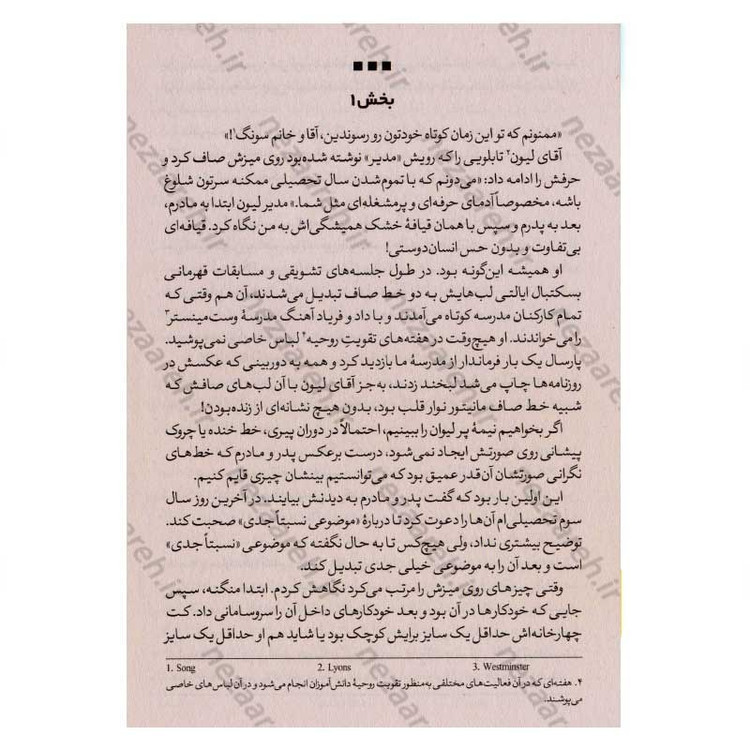 بخش ۱
«ممنونم که تو این زمان کوتاه خودتون رو رسوندین، آقا و خانم سونگ۱!»
آقای لیون۲ تابلویی را که رویش «مدیر» نوشته شده‌بود روی میزش صاف کرد و
حرفش را ادامه داد: «می‌دونم که با تموم‌شدن سال تحصیلی ممکنه سرتون شلوغ
باشه، مخصوصاً آدمای حرفه‌ای و پرمشغله‌ای مثل شما.» مدیر لیون ابتدا به مادرم،
بعد به پدرم و سپس با همان قیافهٔ خشک همیشگی‌اش به من نگاه کرد. قیافه‌ای
بی‌تفاوت و بدون حس انسان‌دوستی!
او همیشه این‌گونه بود. در طول جلسه‌های تشویقی و مسابقات قهرمانی
بسکتبال ایالتی لب‌هایش به دو خط صاف تبدیل می‌شدند، آن هم وقتی که
تمام کارکنان مدرسه کوتاه می‌آمدند و با داد و فریاد آهنگ مدرسهٔ وست‌مینستر۳
را می‌خواندند. او هیچ‌وقت در هفته‌های تقویتِ روحیه۴ لباس خاصی نمی‌پوشید.
پارسال یک بار فرماندار از مدرسهٔ ما بازدید کرد و همه به دوربینی که عکسش در
روزنامه‌ها چاپ می‌شد لبخند زدند، به‌جز آقای لیون با آن لب‌های صافش که
شبیه خط صاف مانیتور نوار قلب بود، بدون هیچ نشانه‌ای از زنده‌بودن!
اگر بخواهیم نیمهٔ پر لیوان را ببینیم، احتمالاً در دوران پیری، خط خنده یا چروک
پیشانی روی صورتش ایجاد نمی‌شود، درست برعکس پدر و مادرم که خط‌های
نگرانی صورتشان آن‌قدر عمیق بود که می‌توانستیم بینشان چیزی قایم کنیم.
این اولین بار بود که گفت پدر و مادرم به دیدنش بیایند. در آخرین روز سال
سوم تحصیلی‌ام آن‌ها را دعوت کرد تا دربارهٔ «موضوعی نسبتاً جدی» صحبت کند.
توضیح بیشتری نداد، ولی هیچ‌کس تا به حال نگفته که موضوعی «نسبتاً جدی»
است و بعد آن را به موضوعی خیلی جدی تبدیل کند.
وقتی چیزهای روی میزش را مرتب می‌کرد نگاهش کردم. ابتدا منگنه، سپس
جایی که خودکارها در آن بود و بعد خودکارهای داخل آن را سروسامانی داد. کت
چهارخانه‌اش حداقل یک سایز برایش کوچک بود یا شاید هم او حداقل یک سایز
1. Song 2. Lyons 3. Westminster
۴. هفته‌ای که در آن فعالیت‌های مختلفی به‌منظور تقویت روحیهٔ دانش‌آموزان انجام می‌شود و در آن لباس‌های خاصی
می‌پوشند.
nezaareh.ir